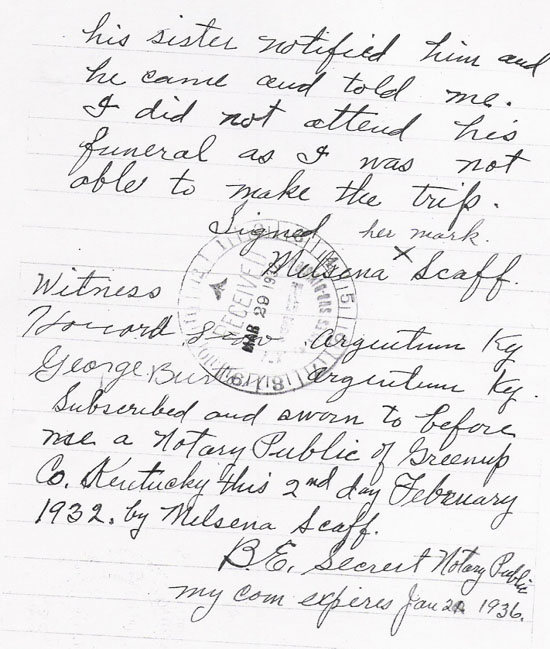 his sister notified him and
he came and told me.
I did not attend his
funeral as I was not
able to make the trip.
Signed her mark.
Melsena X Scaff.
RECEIVED
MAR 29
Witness
Howard Argentum Ky
George Argentum Ky.
Subscribed and sworn to before
me a Notary Public of Greenup
Co. Kentucky this 2nd day February
1932. by Melsena Scaff.
B.E. Secrest Notary Public
my com expires Jan 1936.